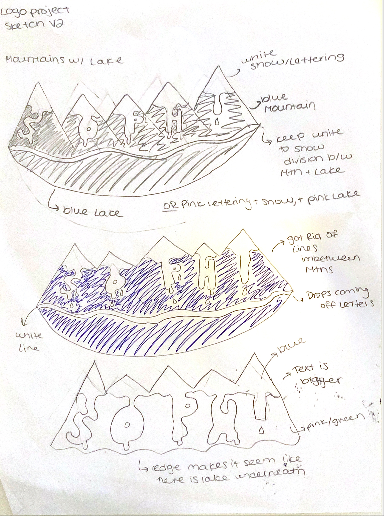 Logo project
Sketch V2
Mountains w/ Lake
white
snow/lettering
blue
mountain
keep white
to show
division b/w
mtn + lake
blue lake
OR pink lettering + snow, + pink lake
SOPHI
got rid of
lines
inbetween
mtns
Drops coming
off letters
white
line
SOPHI
blue
Text is
bigger
pink/green
SOPHI
edge makes it seem like
there is lake underneath